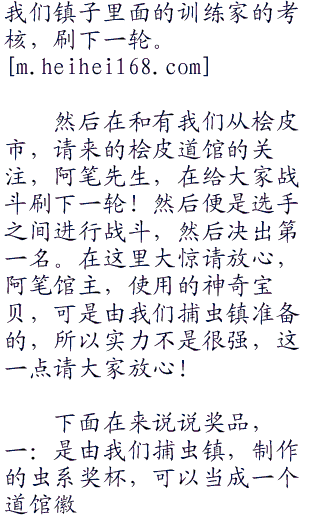 我们镇子里面的训练家的考
核，刷下一轮。
[m.heihei168.com]
然后在和有我们从桧皮
市，请来的桧皮道馆的关
注，阿笔先生，在给大家战
斗刷下一轮！然后便是选手
之间进行战斗，然后决出第
一名。在这里大惊请放心，
阿笔馆主，使用的神奇宝
贝，可是由我们捕虫镇准备
的，所以实力不是很强，这
一点请大家放心！
下面在来说说奖品，
一：是由我们捕虫镇，制作
的虫系奖杯，可以当成一个
道馆徽